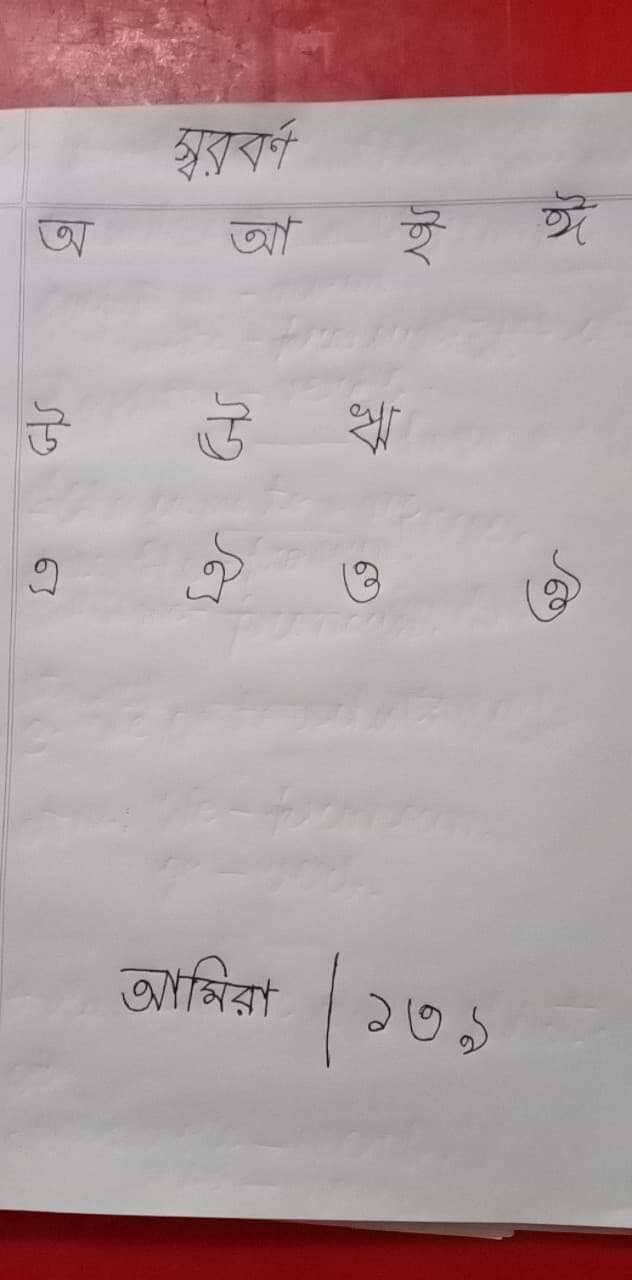 স্বরবর্ণ
অ আ ই ঈ
উ ঊ ঋ
এ ঐ ও ঔ
আমিরা | ১৩৯